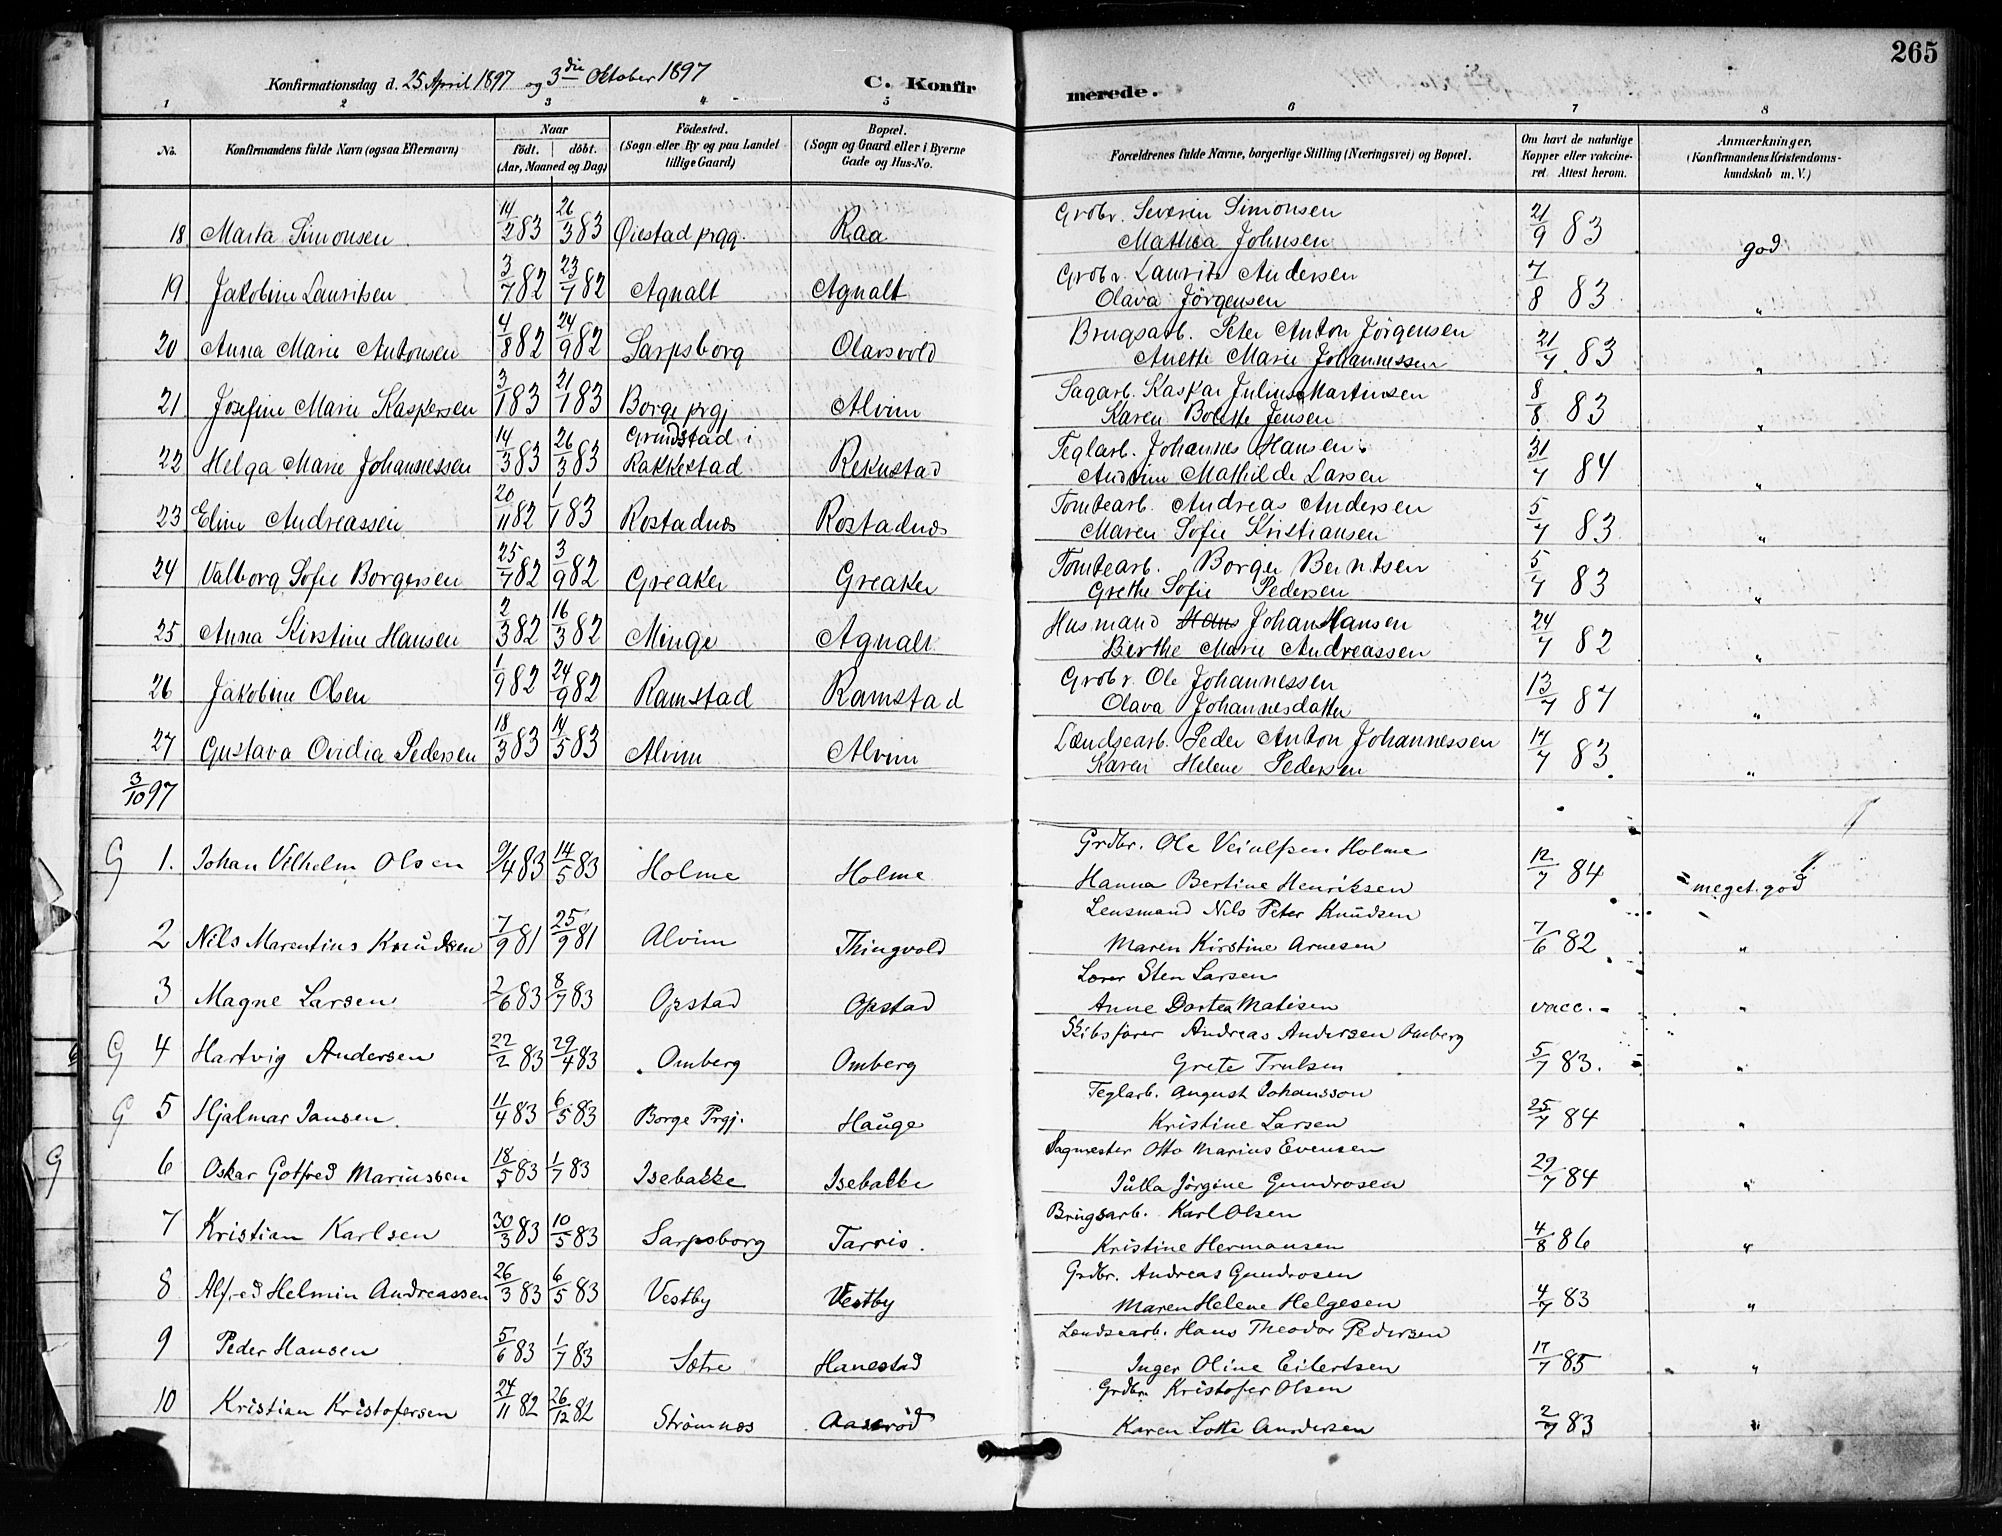 265
Konfirmationsdag d. 25 April 1897 og 3die Oktober 1897 C. Konfirmerede.
1 2 3 4 5 6 7 8
No. Konfirmandens fulde Navn (ogsaa Efternavn) Naar født. døbt. (Aar, Maaned og Dag) Fødested. (Sogn eller By og paa Landet tillige Gaard) Bopæl. (Sogn og Gaard eller i Byerne Gade og Hus-No. Forældrenes fulde Navne, borgerlige Stilling (Næringsvei) og Bopæl. Om havt de naturlige Kopper eller vakcineret. Attest herom. Anmærkninger. (Konfirmandens Kristendomskundskab m. V.)
18 Marta Simonsen 14/2 83 26/3 83 Øiestad prgj. Raa Grdbr. Severin Simonsen 21/9 83 god
Mathea Johnsen
19 Jakobine Lauritsen 3/7 82 23/7 82 Agnalt Agnalt Grdbr. Laurits Andersen 7/8 83 "
Olava Jörgensen
20 Anna Marie Antonsen 4/8 82 24/9 82 Sarpsborg Olavsvold Brugsarb. Peter Anton Jörgensen 21/7 83 "
Anette Marie Johannessen
21 Josefine Marie Kaspersen 3/1 83 21/1 83 Borge prgj Alvim Sagarb. Kaspar Julius Martinsen 8/8 83 "
Karen Bolette Jensen
22 Helga Marie Johannessen 14/3 83 26/3 83 Grimstad i Rakkestad Reknstad Teglarb. Johannes Hansen 31/7 84 "
Andrine Mathilde Larsen
23 Eline Andreassen 20/11 82 1/1 83 Rostadnæs Rostadnæs Tomtearb. Andreas Andersen 5/7 83 "
Maren Sofie Kristiansen
24 Valborg Sofie Borgersen 25/7 82 3/9 82 Greaker Greaker Tomtearb. Borger Berntsen 5/7 83 "
Grethe Sofie Pedersen
25 Anna Kirstine Hansen 2/3 82 16/3 82 Minge Agnalt Husmand Hans Johan Hansen 24/7 82 "
Birthe Marie Andreassen
26 Jakobine Olsen 1/9 82 24/9 82 Ramstad Ramstad Grdbr. Ole Johannessen 13/7 87 "
Olava Johannesdatter
27 Gustava Ovidia Pedersen 18/3 83 14/5 83 Alvim Alvim Lændsearb. Peder Anton Johannessen 14/7 83 "
Karen Helene Pedersen
3/10 97
G 1. Johan Vilhelm Olsen 9/4 83 14/5 83 Holme Holme Grdbr. Ole Veiulfsen Holme 12/7 84 meget god
Hanna Bertine Henriksen
2 Nils Marentius Knudsen 7/9 81 25/9 81 Alvim Thingvold Lensmand Nils Peter Knudsen 7/6 82 "
Maren Kirstine Arnesen
3 Magne Larsen 2/6 83 8/7 83 Opstad Opstad Lærer Sten Larsen vacc. "
Anne Dortea Matisen
G 4 Hartvig Andersen 22/2 83 29/4 83 Omberg Omberg Skibsfører Andreas Andersen Omberg 5/7 83. "
Grete Trulsen
G 5 Hjalmar Jansen 11/4 83 6/5 83 Borge Prgj. Hauge Teglarb. August Johansson 25/7 84 "
Kristine Larsen
G 6 Oskar Gotfred Mariussen 18/5 83 1/7 83 Isebakke Isebakke Sagmester Otto Marius Evensen 29/7 84 "
Julla Jörgine Gundrosen
7 Kristian Karlsen 30/3 83 10/5 83 Sarpsborg Tarris. Brugsarb. Karl Olsen 4/8 86 "
Kristine Hermansen
8 Alfred Helmin Andreassen 26/3 83 6/5 83 Vestby Vestby Grdbr. Andreas Gundrosen 4/7 83 "
Maren Helene Helgesen
9 Peder Hansen 5/6 83 1/7 83 Sætre Hanestad Lændsearb. Hans Theodor Pedersen 17/7 85 "
Inger Oline Eilertsen
10 Kristian Kristofersen 24/11 82 26/12 82 Strømnæs Aaserød Grdbr. Kristofer Olsen 2/7 83 "
Karen Lotte Andersen